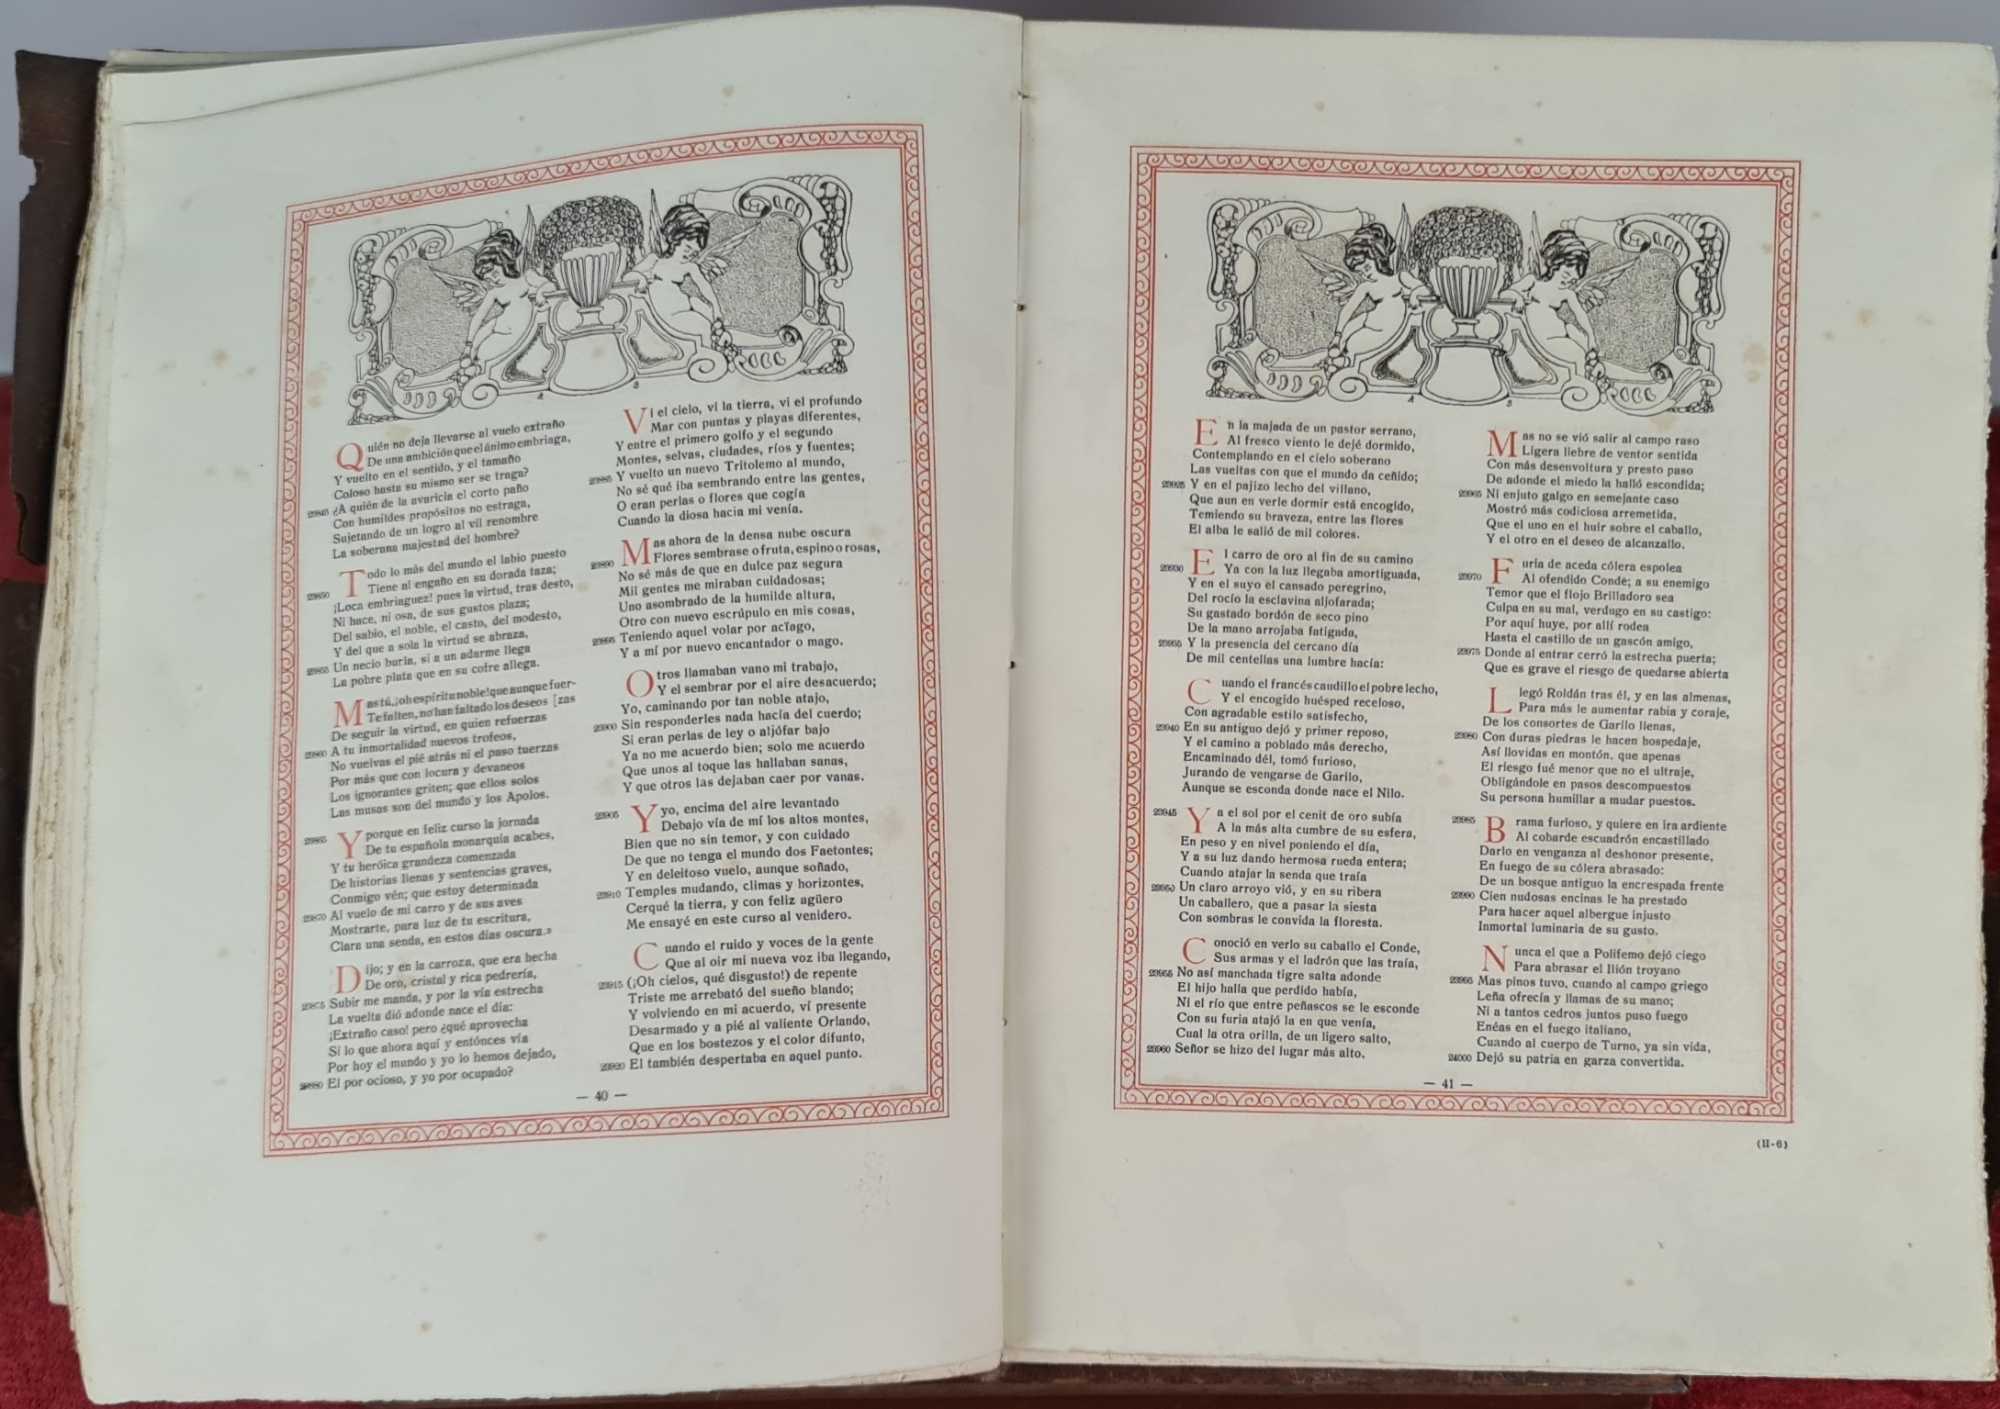 Quién no deja llevarse al vuelo extraño
De una ambición que el ánimo embriaga,
Y vuelto en el sentido, y el tamaño
Coloso hasta su mismo ser se traga?
23845 ¿A quién de la avaricia el corto paño
Con humildes propósitos no estraga,
Sujetando de un logro al vil renombre
La soberana majestad del hombre?
Todo lo más del mundo el labio puesto
23850 Tiene al engaño en su dorada taza;
¡Loca embriaguez! pues la virtud, tras desto,
Ni hace, ni osa, de sus gustos plaza;
Del sabio, el noble, el casto, del modesto,
Y del que a sola la virtud se abraza,
23855 Un necio burla, si a un adarme llega
La pobre plata que en su cofre allega.
Mas tú, ¡oh espíritu noble! que aunque fuer-
Te falten, no han faltado los deseos [zas
De seguir la virtud, en quien refuerzas
23860 A tu inmortalidad nuevos trofeos,
No vuelvas el pié atrás ni el paso tuerzas
Por más que con locura y devaneos
Los ignorantes griten; que ellos solos
Las musas son del mundo y los Apolos.
23865 Y porque en feliz curso la jornada
De tu española monarquía acabes,
Y tu heróica grandeza comenzada
De historias llenas y sentencias graves,
Conmigo vén; que estoy determinada
23870 Al vuelo de mi carro y de sus aves
Mostrarte, para luz de tu escritura,
Clara una senda, en estos días oscura.»
Dijo; y en la carroza, que era hecha
De oro, cristal y rica pedrería,
23875 Subir me manda, y por la vía estrecha
La vuelta dió adonde nace el día:
¡Extraño caso! pero ¿qué aprovecha
Si lo que ahora aquí y entónces vía
Por hoy el mundo y yo lo hemos dejado,
23880 El por ocioso, y yo por ocupado?
Vi el cielo, vi la tierra, vi el profundo
Mar con puntas y playas diferentes,
Y entre el primero golfo y el segundo
Montes, selvas, ciudades, ríos y fuentes;
23885 Y vuelto un nuevo Tritolemo al mundo,
No sé qué iba sembrando entre las gentes,
O eran perlas o flores que cogía
Cuando la diosa hacia mi venía.
Mas ahora de la densa nube oscura
23890 Flores sembrase o fruta, espino o rosas,
No sé más de que en dulce paz segura
Mil gentes me miraban cuidadosas;
Uno asombrado de la humilde altura,
Otro con nuevo escrúpulo en mis cosas,
23895 Teniendo aquel volar por acíago,
Y a mí por nuevo encantador o mago.
Otros llamaban vano mi trabajo,
Y el sembrar por el aire desacuerdo;
Yo, caminando por tan noble atajo,
23900 Sin responderles nada hacía del cuerdo;
Si eran perlas de ley o aljófar bajo
Ya no me acuerdo bien; solo me acuerdo
Que unos al toque las hallaban sanas,
Y que otros las dejaban caer por vanas.
23905 Y yo, encima del aire levantado
Debajo vía de mí los altos montes,
Bien que no sin temor, y con cuidado
De que no tenga el mundo dos Faetontes;
Y en deleitoso vuelo, aunque soñado,
23910 Temples mudando, climas y horizontes,
Cerqué la tierra, y con feliz agüero
Me ensayé en este curso al venidero.
Cuando el ruido y voces de la gente
Que al oir mi nueva voz iba llegando,
23915 (¡Oh cielos, qué disgusto!) de repente
Triste me arrebató del sueño blando;
Y volviendo en mi acuerdo, ví presente
Desarmado y a pié al valiente Orlando,
Que en los bostezos y el color difunto,
23920 El también despertaba en aquel punto.
— 40 —
En la majada de un pastor serrano,
Al fresco viento le dejé dormido,
Contemplando en el cielo soberano
Las vueltas con que el mundo da ceñido;
23925 Y en el pajizo lecho del villano,
Que aun en verle dormir está encogido,
Temiendo su braveza, entre las flores
El alba le salió de mil colores.
El carro de oro al fin de su camino
23930 Ya con la luz llegaba amortiguada,
Y en el suyo el cansado peregrino,
Del rocío la esclavina aljofarada;
Su gastado bordón de seco pino
De la mano arrojaba fatigada,
23935 Y la presencia del cercano día
De mil centellas una lumbre hacía:
Cuando el francés caudillo el pobre lecho,
Y el encogido huésped receloso,
Con agradable estilo satisfecho,
23940 En su antiguo dejó y primer reposo,
Y el camino a poblado más derecho,
Encaminado dél, tomó furioso,
Jurando de vengarse de Garilo,
Aunque se esconda donde nace el Nilo.
23945 Ya el sol por el cenit de oro subía
A la más alta cumbre de su esfera,
En peso y en nivel poniendo el día,
Y a su luz dando hermosa rueda entera;
Cuando atajar la senda que traía
23950 Un claro arroyo vió, y en su ribera
Un caballero, que a pasar la siesta
Con sombras le convida la floresta.
Conoció en verlo su caballo el Conde,
Sus armas y el ladrón que las traía,
23955 No así manchada tigre salta adonde
El hijo halla que perdido había,
Ni el río que entre peñascos se le esconde
Con su furia atajó la en que venía,
Cual la otra orilla, de un ligero salto,
23960 Señor se hizo del lugar más alto.
Mas no se vió salir al campo raso
Ligera liebre de ventor sentida
Con más desenvoltura y presto paso
De adonde el miedo la halló escondida;
23965 Ni enjuto galgo en semejante caso
Mostró más codiciosa arremetida,
Que el uno en el huir sobre el caballo,
Y el otro en el deseo de alcanzallo.
Furia de aceda cólera espolea
23970 Al ofendido Conde; a su enemigo
Temor que el flojo Brilladoro sea
Culpa en su mal, verdugo en su castigo:
Por aquí huye, por allí rodea
Hasta el castillo de un gascón amigo,
23975 Donde al entrar cerró la estrecha puerta;
Que es grave el riesgo de quedarse abierta
Llegó Roldán tras él, y en las almenas,
Para más le aumentar rabia y coraje,
De los consortes de Garilo llenas,
23980 Con duras piedras le hacen hospedaje,
Así llovidas en montón, que apenas
El riesgo fué menor que no el ultraje,
Obligándole en pasos descompuestos
Su persona humillar a mudar puestos.
23985 Brama furioso, y quiere en ira ardiente
Al cobarde escuadrón encastillado
Darlo en venganza al deshonor presente,
En fuego de su cólera abrasado:
De un bosque antiguo la encrespada frente
23990 Cien nudosas encinas le ha prestado
Para hacer aquel albergue injusto
Inmortal luminaria de su gusto.
Nunca el que a Polifemo dejó ciego
Para abrasar el Ilión troyano
23995 Mas pinos tuvo, cuando al campo griego
Leña ofrecía y llamas de su mano;
Ni a tantos cedros juntos puso fuego
Enéas en el fuego italiano,
Cuando al cuerpo de Turno, ya sin vida,
24000 Dejó su patria en garza convertida.
— 41 —
(II-6)